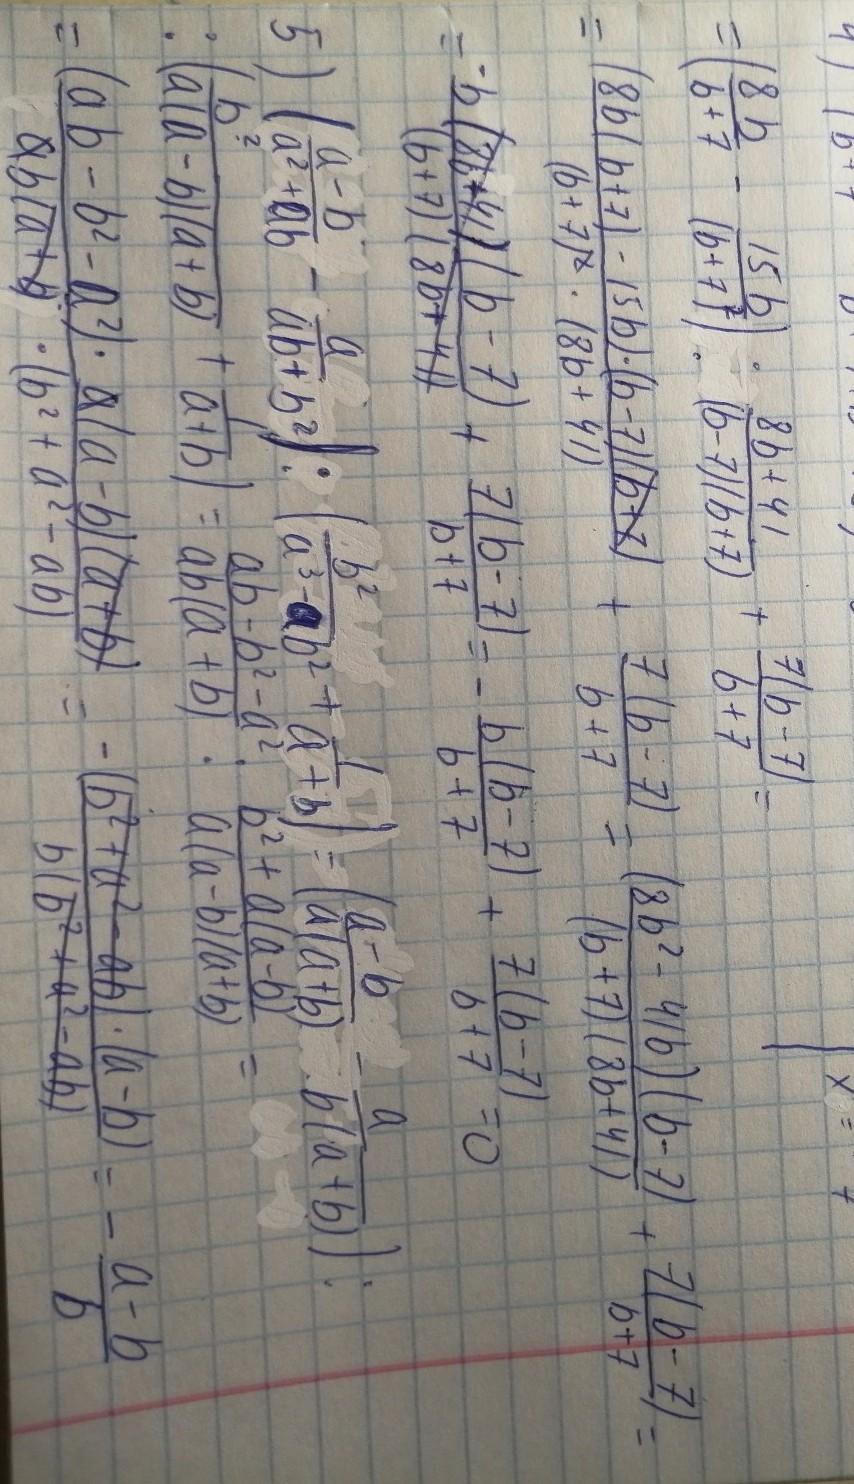 = (8b/(b+7) - 15b/(b+7)²) · (8b+41)/((b-7)(b+7)) + 7(b-7)/(b+7) =
= (8b(b+7) - 15b)·(b-7)(b+7)/((b+7)² · (8b+41)) + 7(b-7)/(b+7) = (8b² - 41b)(b-7)/((b+7)(8b+41)) + 7(b-7)/(b+7) =
= -b(8b+41)(b-7)/((b+7)(8b+41)) + 7(b-7)/(b+7) = - b(b-7)/(b+7) + 7(b-7)/(b+7) = 0
5) ((a-b)/(a²+ab) - a/(ab+b²)) : (b²/(a³-ab²) + 1/(a+b)) = ((a-b)/(a(a+b)) - a/(b(a+b))) :
: (b²/(a(a-b)(a+b)) + 1/(a+b)) = (ab-b²-a²)/(ab(a+b)) : (b²+a(a-b))/(a(a-b)(a+b)) =
= (ab-b²-a²)·a(a-b)(a+b)/(ab(a+b)·(b²+a²-ab)) = -(b²+a²-ab)·(a-b)/(b(b²+a²-ab)) = - (a-b)/b